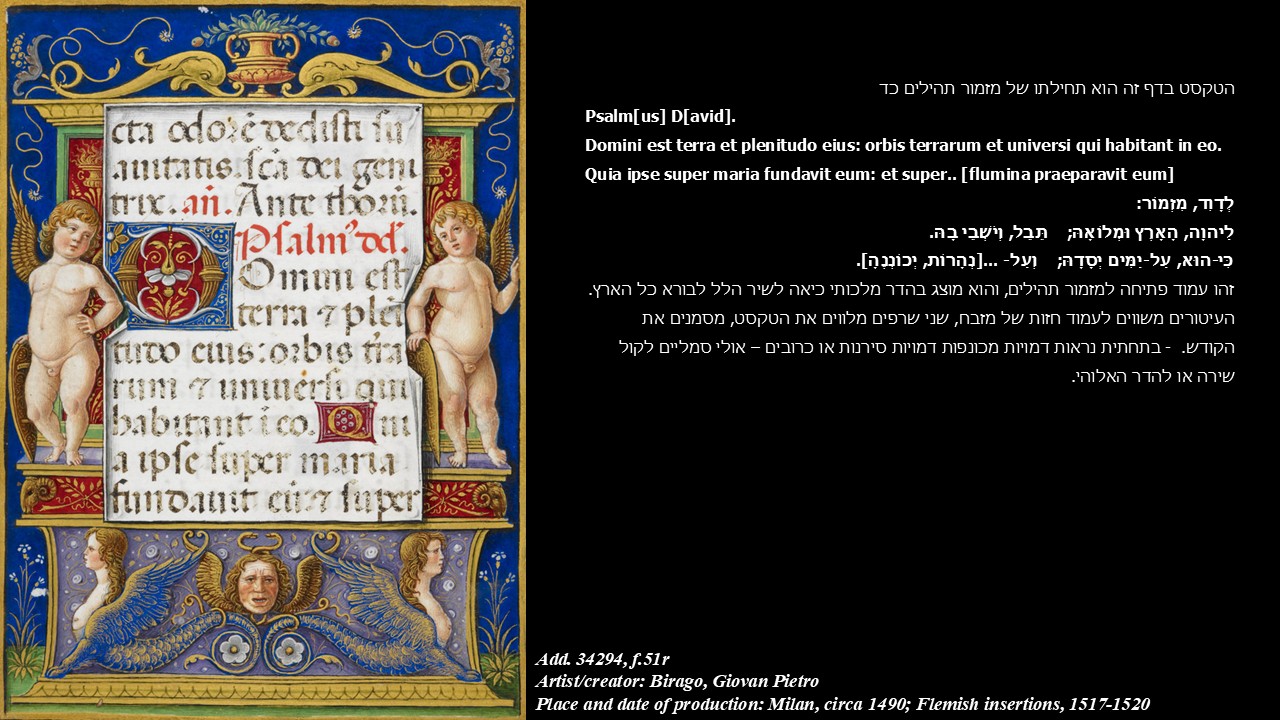 cta odore dedisti su
auitatis. scā dei geni
trix. añ. Ante thorū.
Psalm⁹ dd̄.
Omini est
terra ⁊ plēi
tudo eius: orbis tr̄a
rum ⁊ uniuersi qui
habitant ī eo. Qui
a ipse super maria
fundauit eū: ⁊ super
הטקסט בדף זה הוא תחילתו של מזמור תהילים כד
Psalm[us] D[avid].
Domini est terra et plenitudo eius: orbis terrarum et universi qui habitant in eo.
Quia ipse super maria fundavit eum: et super.. [flumina praeparavit eum]
לְדָוִד, מִזְמוֹר:
לַיהוָה, הָאָרֶץ וּמְלוֹאָהּ; תֵּבֵל, וְיֹשְׁבֵי בָהּ.
כִּי-הוּא, עַל-יַמִּים יְסָדָהּ; וְעַל- ...[נְהָרוֹת, יְכוֹנְנֶהָ].
זהו עמוד פתיחה למזמור תהילים, והוא מוצג בהדר מלכותי כיאה לשיר הלל לבורא כל הארץ.
העיטורים משווים לעמוד חזות של מזבח, שני שרפים מלווים את הטקסט, מסמנים את
הקודש. - בתחתית נראות דמויות מכונפות דמויות סירנות או כרובים – אולי סמליים לקול
שירה או להדר האלוהי.
Add. 34294, f.51r
Artist/creator: Birago, Giovan Pietro
Place and date of production: Milan, circa 1490; Flemish insertions, 1517-1520